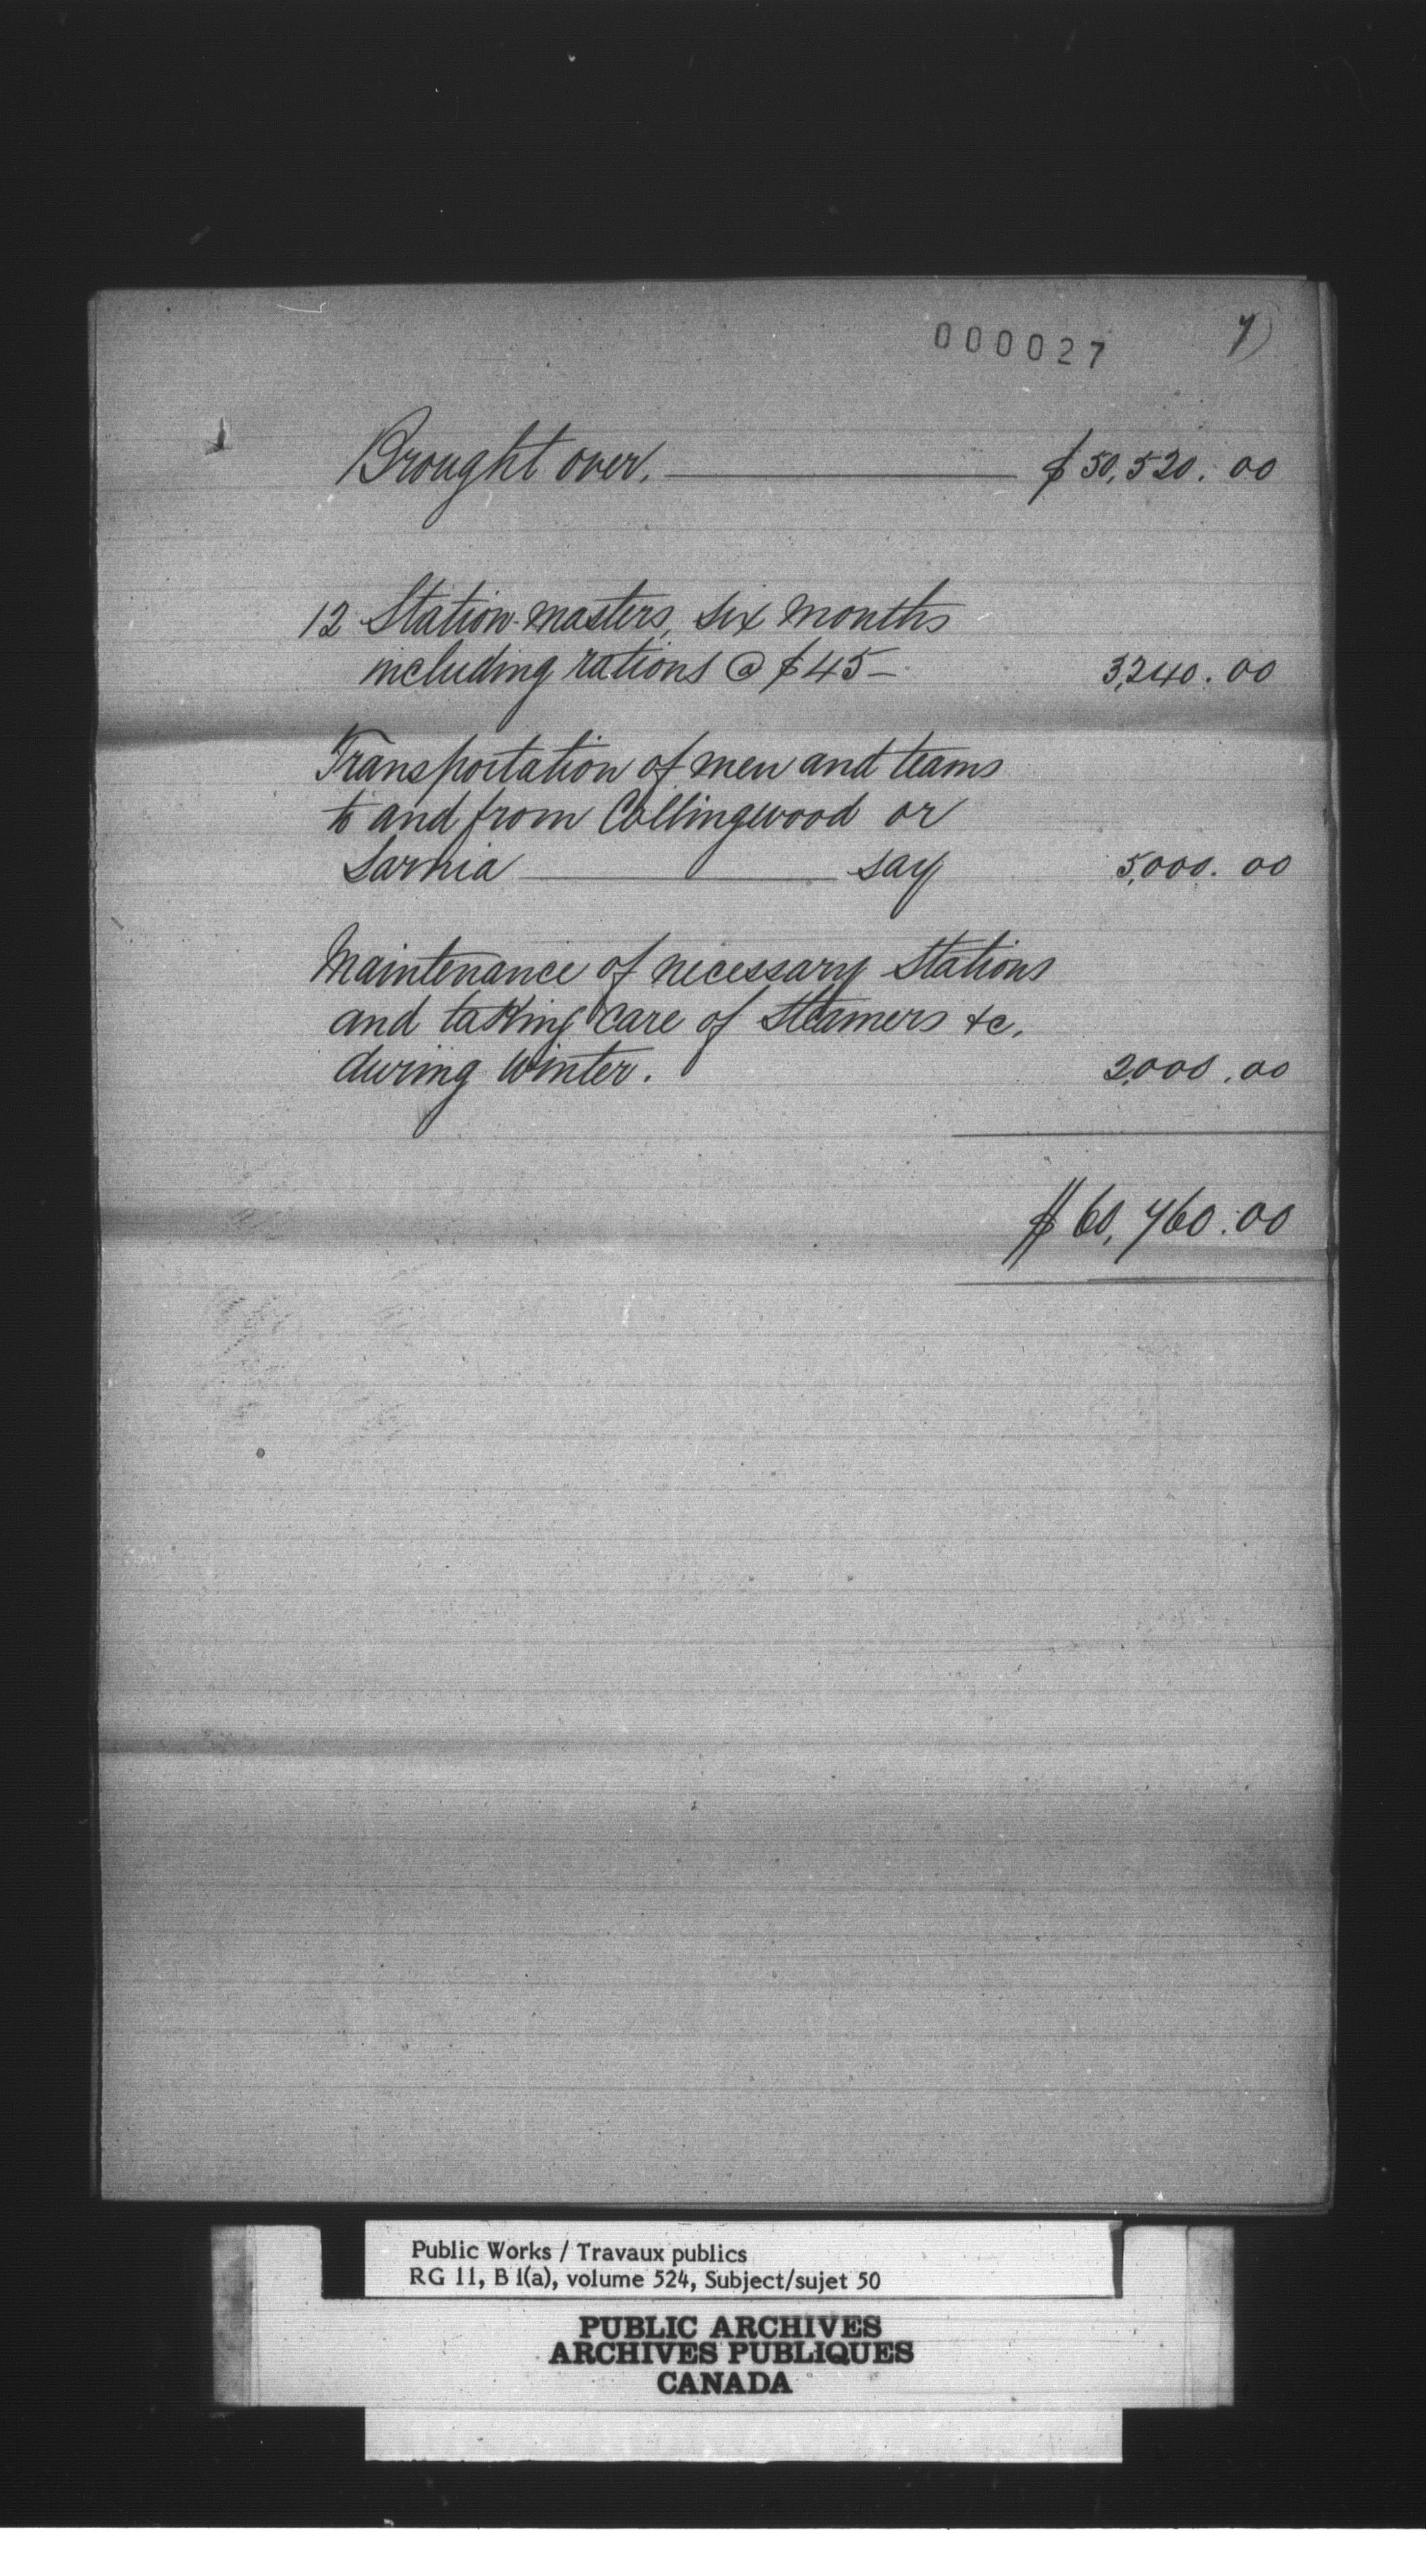 000027
7)
Brought over. $50,520.00
12 Station-masters, six months
including rations @ $45- 3,240.00
Transportation of men and teams
to and from Collingwood or
Sarnia say 5,000.00
Maintenance of necessary Stations
and taking care of Steamers &c.
during Winter. 2,000.00
$60,760.00
Public Works / Travaux publics
RG 11, B 1(a), volume 524, Subject/sujet 50
PUBLIC ARCHIVES
ARCHIVES PUBLIQUES
CANADA